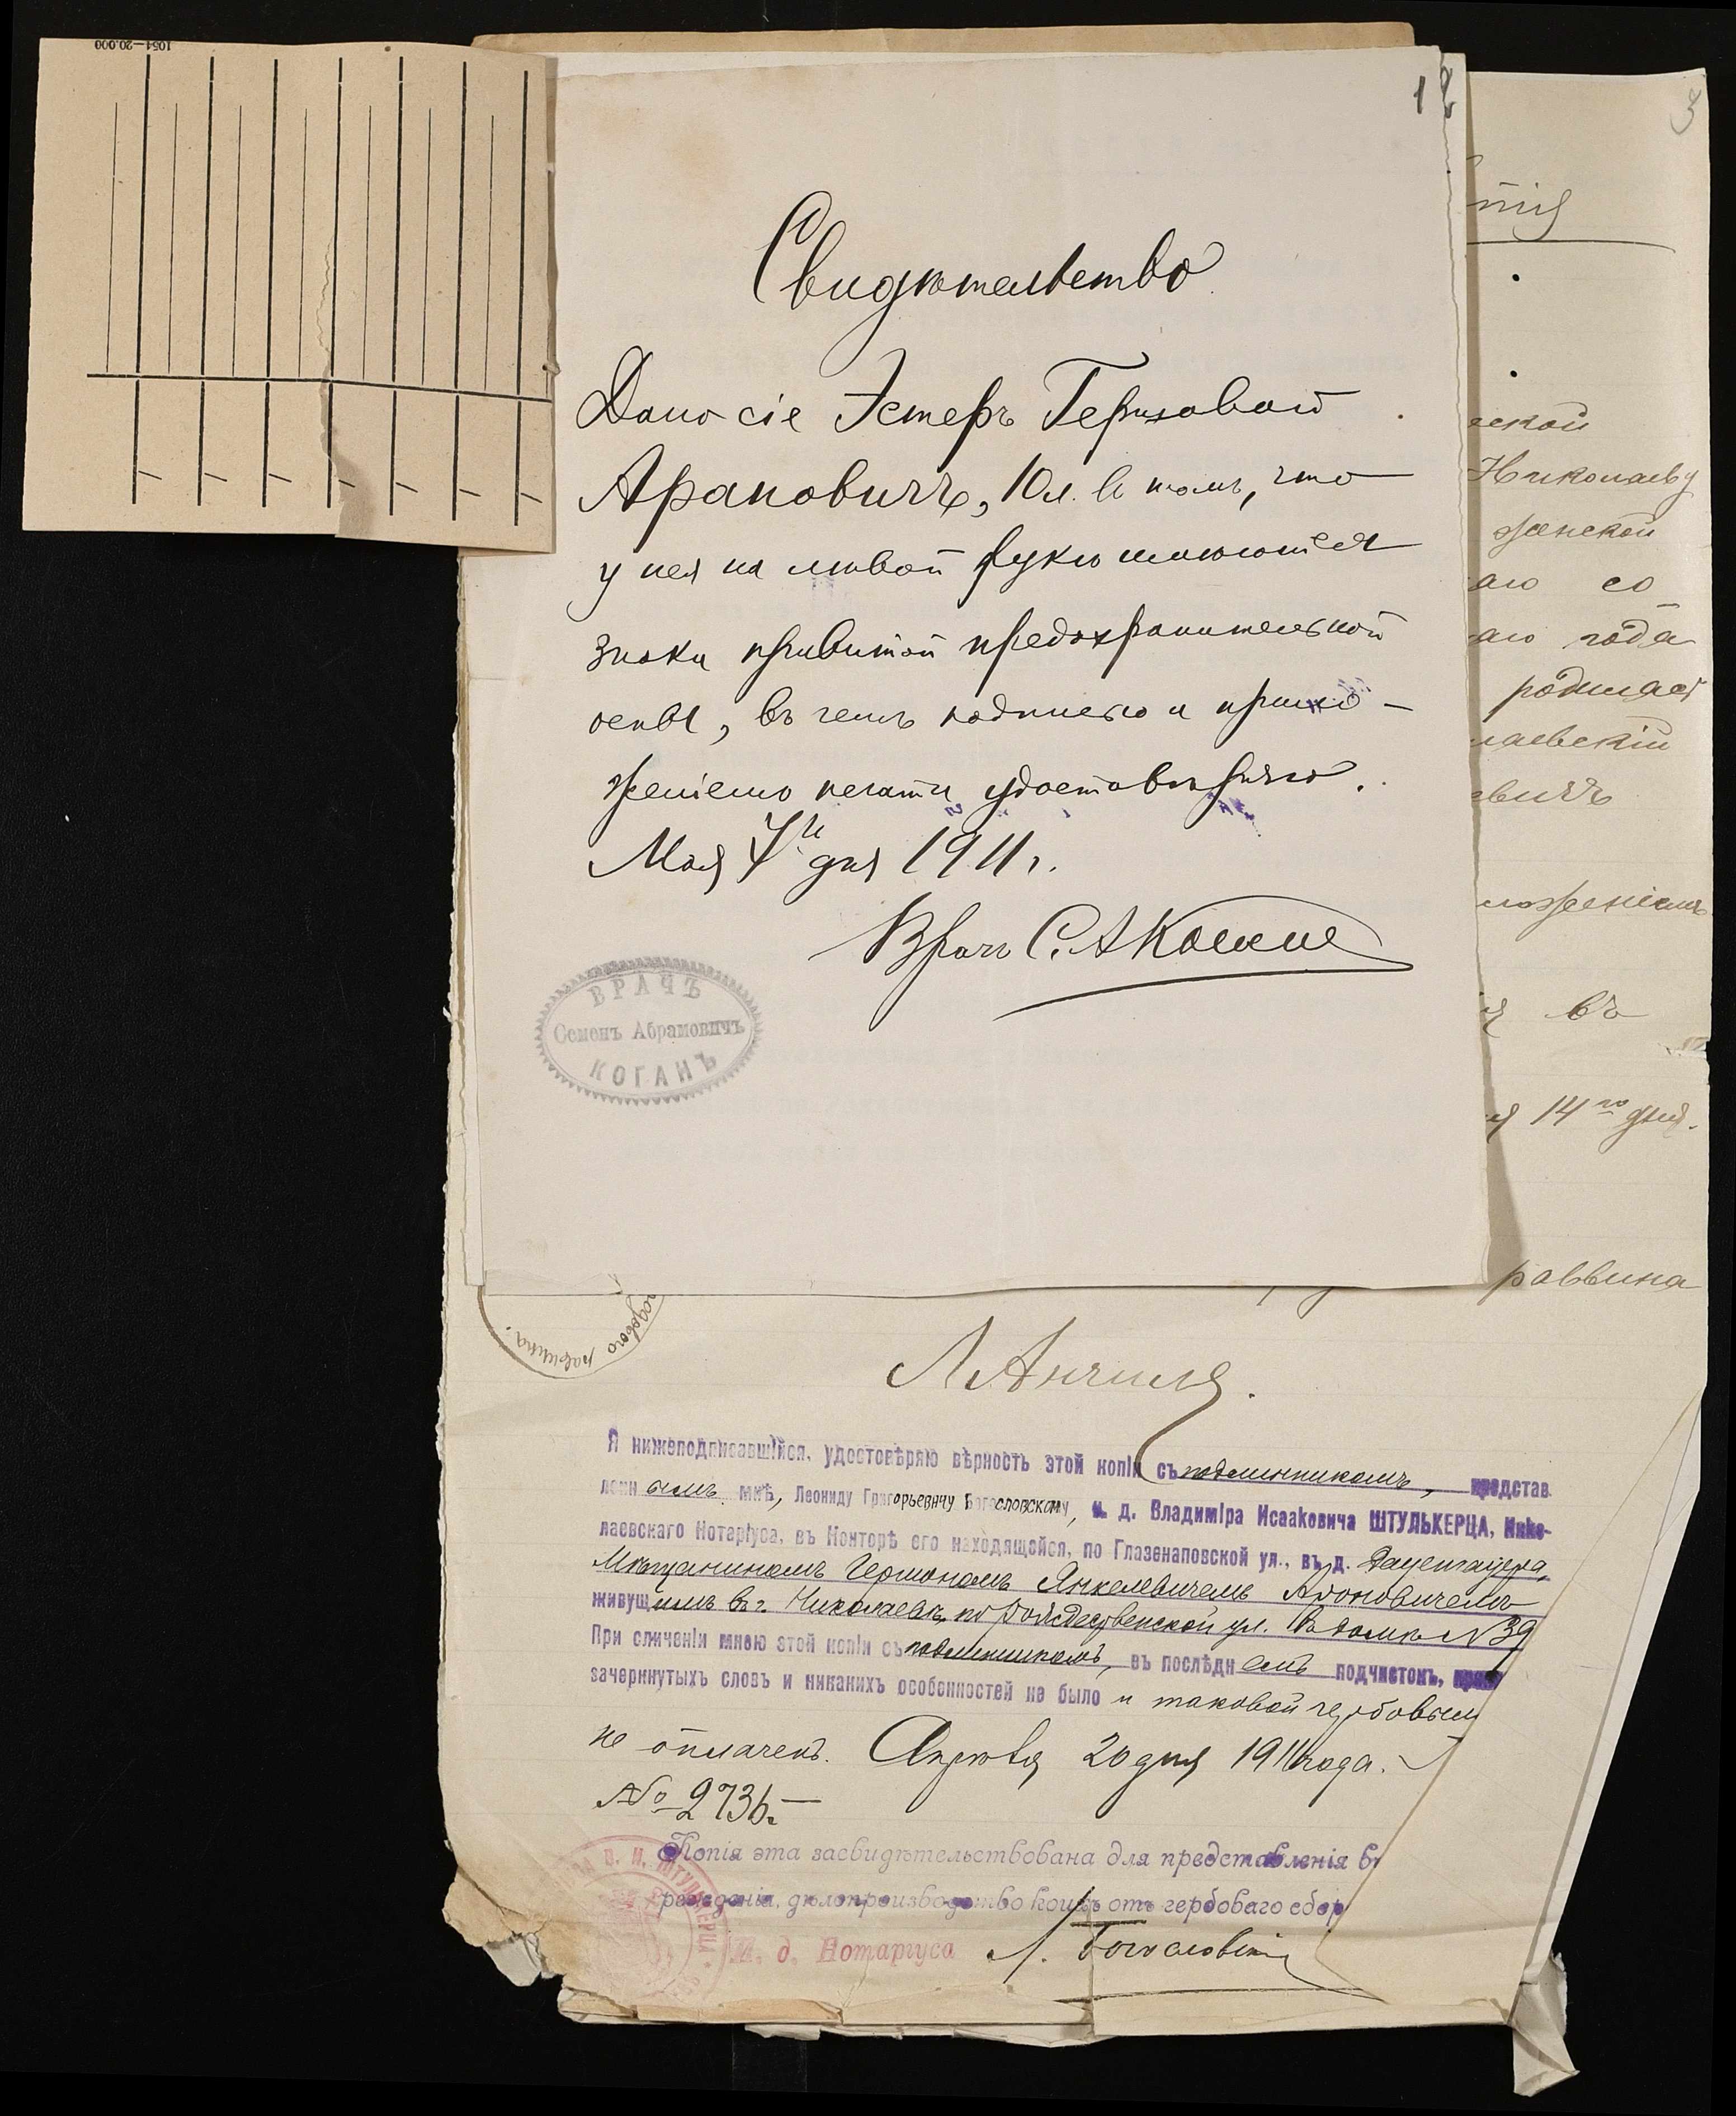 1054—20.000
1
2
3
Свидѣтельство
Дано сіе Эстеръ Гершовой
Ароновичъ, 10 л. въ томъ, что
у нея на лѣвой рукѣ имѣются
знаки привитой предохранительной
оспы, въ чемъ подписью и прило-
женіемъ печати удостовѣряю.
Мая 7го дня 1911 г.
Врачъ С. А. Коганъ
ВРАЧЪ
Семенъ Абрамовичъ
КОГАНЪ
тія
ской
Николаеву
женской
аго со
аго года
родилась
лаевскій
вичъ
ложеніемъ
въ
я 14го дня.
раввина
городового раввина.
Я нижеподписавшійся, удостовѣряю вѣрность этой копіи съ подлинникомъ, представ
леннымъ мнѣ, Леониду Григорьевичу Богословскому, и. д. Владиміра Исааковича ШТУЛЬКЕРЦА, Нико-
лаевскаго Нотаріуса, въ Конторѣ его находящейся, по Глазенаповской ул., въ д.
Мѣщаниномъ Гершономъ Янкелевичемъ Ароновичемъ
живущимъ въ г. Николаевѣ, по Рождественской ул. въ домѣ № 39
При сличеніи мною этой копіи съ подлинникомъ, въ послѣднемъ подчистокъ, прип
зачеркнутыхъ словъ и никакихъ особенностей не было и таковой гербовымъ
не оплаченъ. Апрѣля 20 дня 1911 года.
№ 2736.—
Копія эта засвидѣтельствована для представленія въ
реждénія, дѣлопроизводство коихъ отъ гербоваго сбор
И. д. Нотаріуса Л. Богословскій
В. И. ШТУЛЬКЕРЦА